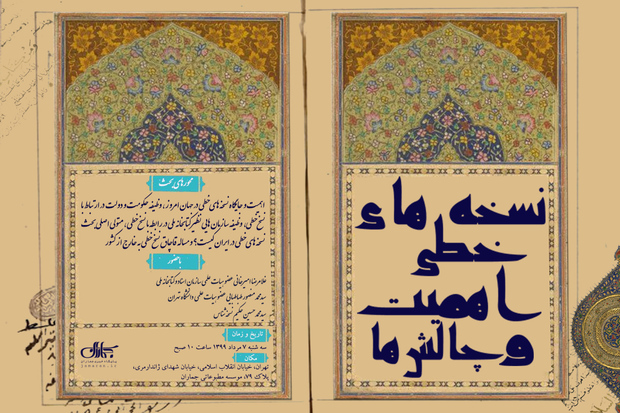 نسخه های
خطی
اهمیت
و چالش ها
محورهای بحث
اهمیت و جایگاه نسخه های خطی در جهان امروز، وظیفه حکومت و دولت در ارتباط با
نسخ خطی، وظیفه سازمان هایی نظیر کتابخانه ملی در رابطه با نسخ خطی، متولی اصلی بحث
نسخه های خطی در ایران کیست؟ و مساله قاچاق نسخ خطی به خارج از کشور
با حضور
غلامرضا امیرخانی عضو هیات علمی سازمان اسناد و کتابخانه ملی
سید محمد منصور طباطبایی عضو هیات علمی دانشگاه تهران
سید محمد حسین حکیم نسخه شناس
تاریخ و زمان
سه شنبه ۷ مرداد ۱۳۹۹ ساعت ۱۰ صبح
مکان
تهران، خیابان انقلاب اسلامی، خیابان شهدای ژاندارمری،
پلاک ۷۹، موسسه مطبوعاتی جماران
جماران